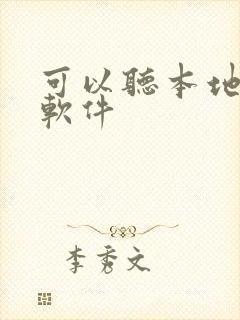 可以聽本地
軟件
李秀文